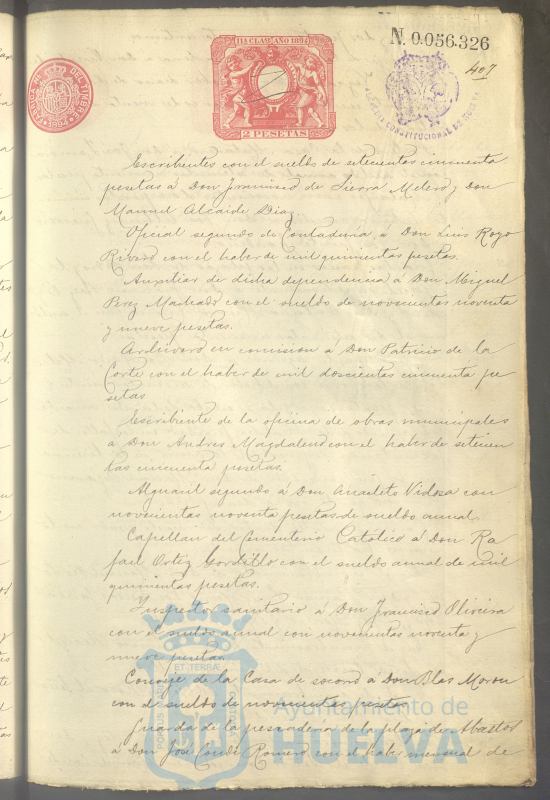 11ª CLASE AÑO 1894
N. 0.056.326
407
TIMBRE DEL ESTADO
1894
2 PESETAS
ALCALDIA CONSTITUCIONAL DE HUELVA
Escribientes con el sueldo de setecientos cincuenta
pesetas á Don Francisco de Sierra Melero y Don
Manuel Alcaide Diaz.
Oficial segundo de Contaduria, a Don Luis Royo
Rivero con el haber de mil quinientas pesetas.
Auxiliar de dicha dependencia á Don Miguel
Perez Machado con el sueldo de novecientas noventa
y nueve pesetas.
Archivero en comision á Don Patricio de la
Corte con el haber de mil doscientas cincuenta pe
setas
Escribiente de la oficina de obras municipales
a Don Andres Magdaleno con el haber de setecien
tas cincuenta pesetas.
Alguacil segundo á Don Anacleto Vidosa con
novecientas noventa pesetas de sueldo annal
Capellan del Cementerio Católico á Don Ra
fael Ortiz Gordillo con el sueldo annal de mil
quinientas pesetas.
Inspector sanitario á Don Francisco Oliveira
con el sueldo annal con novecientas noventa y
nueve pesetas.
Conserje de la Casa de socorro á Don Blas Moron
con el sueldo de novecientas pesetas
Guarda de la pescaderia de la plaza de Abastos
á Don José Conde Romero con el haber mensual de
Ayuntamiento de
HUELVA